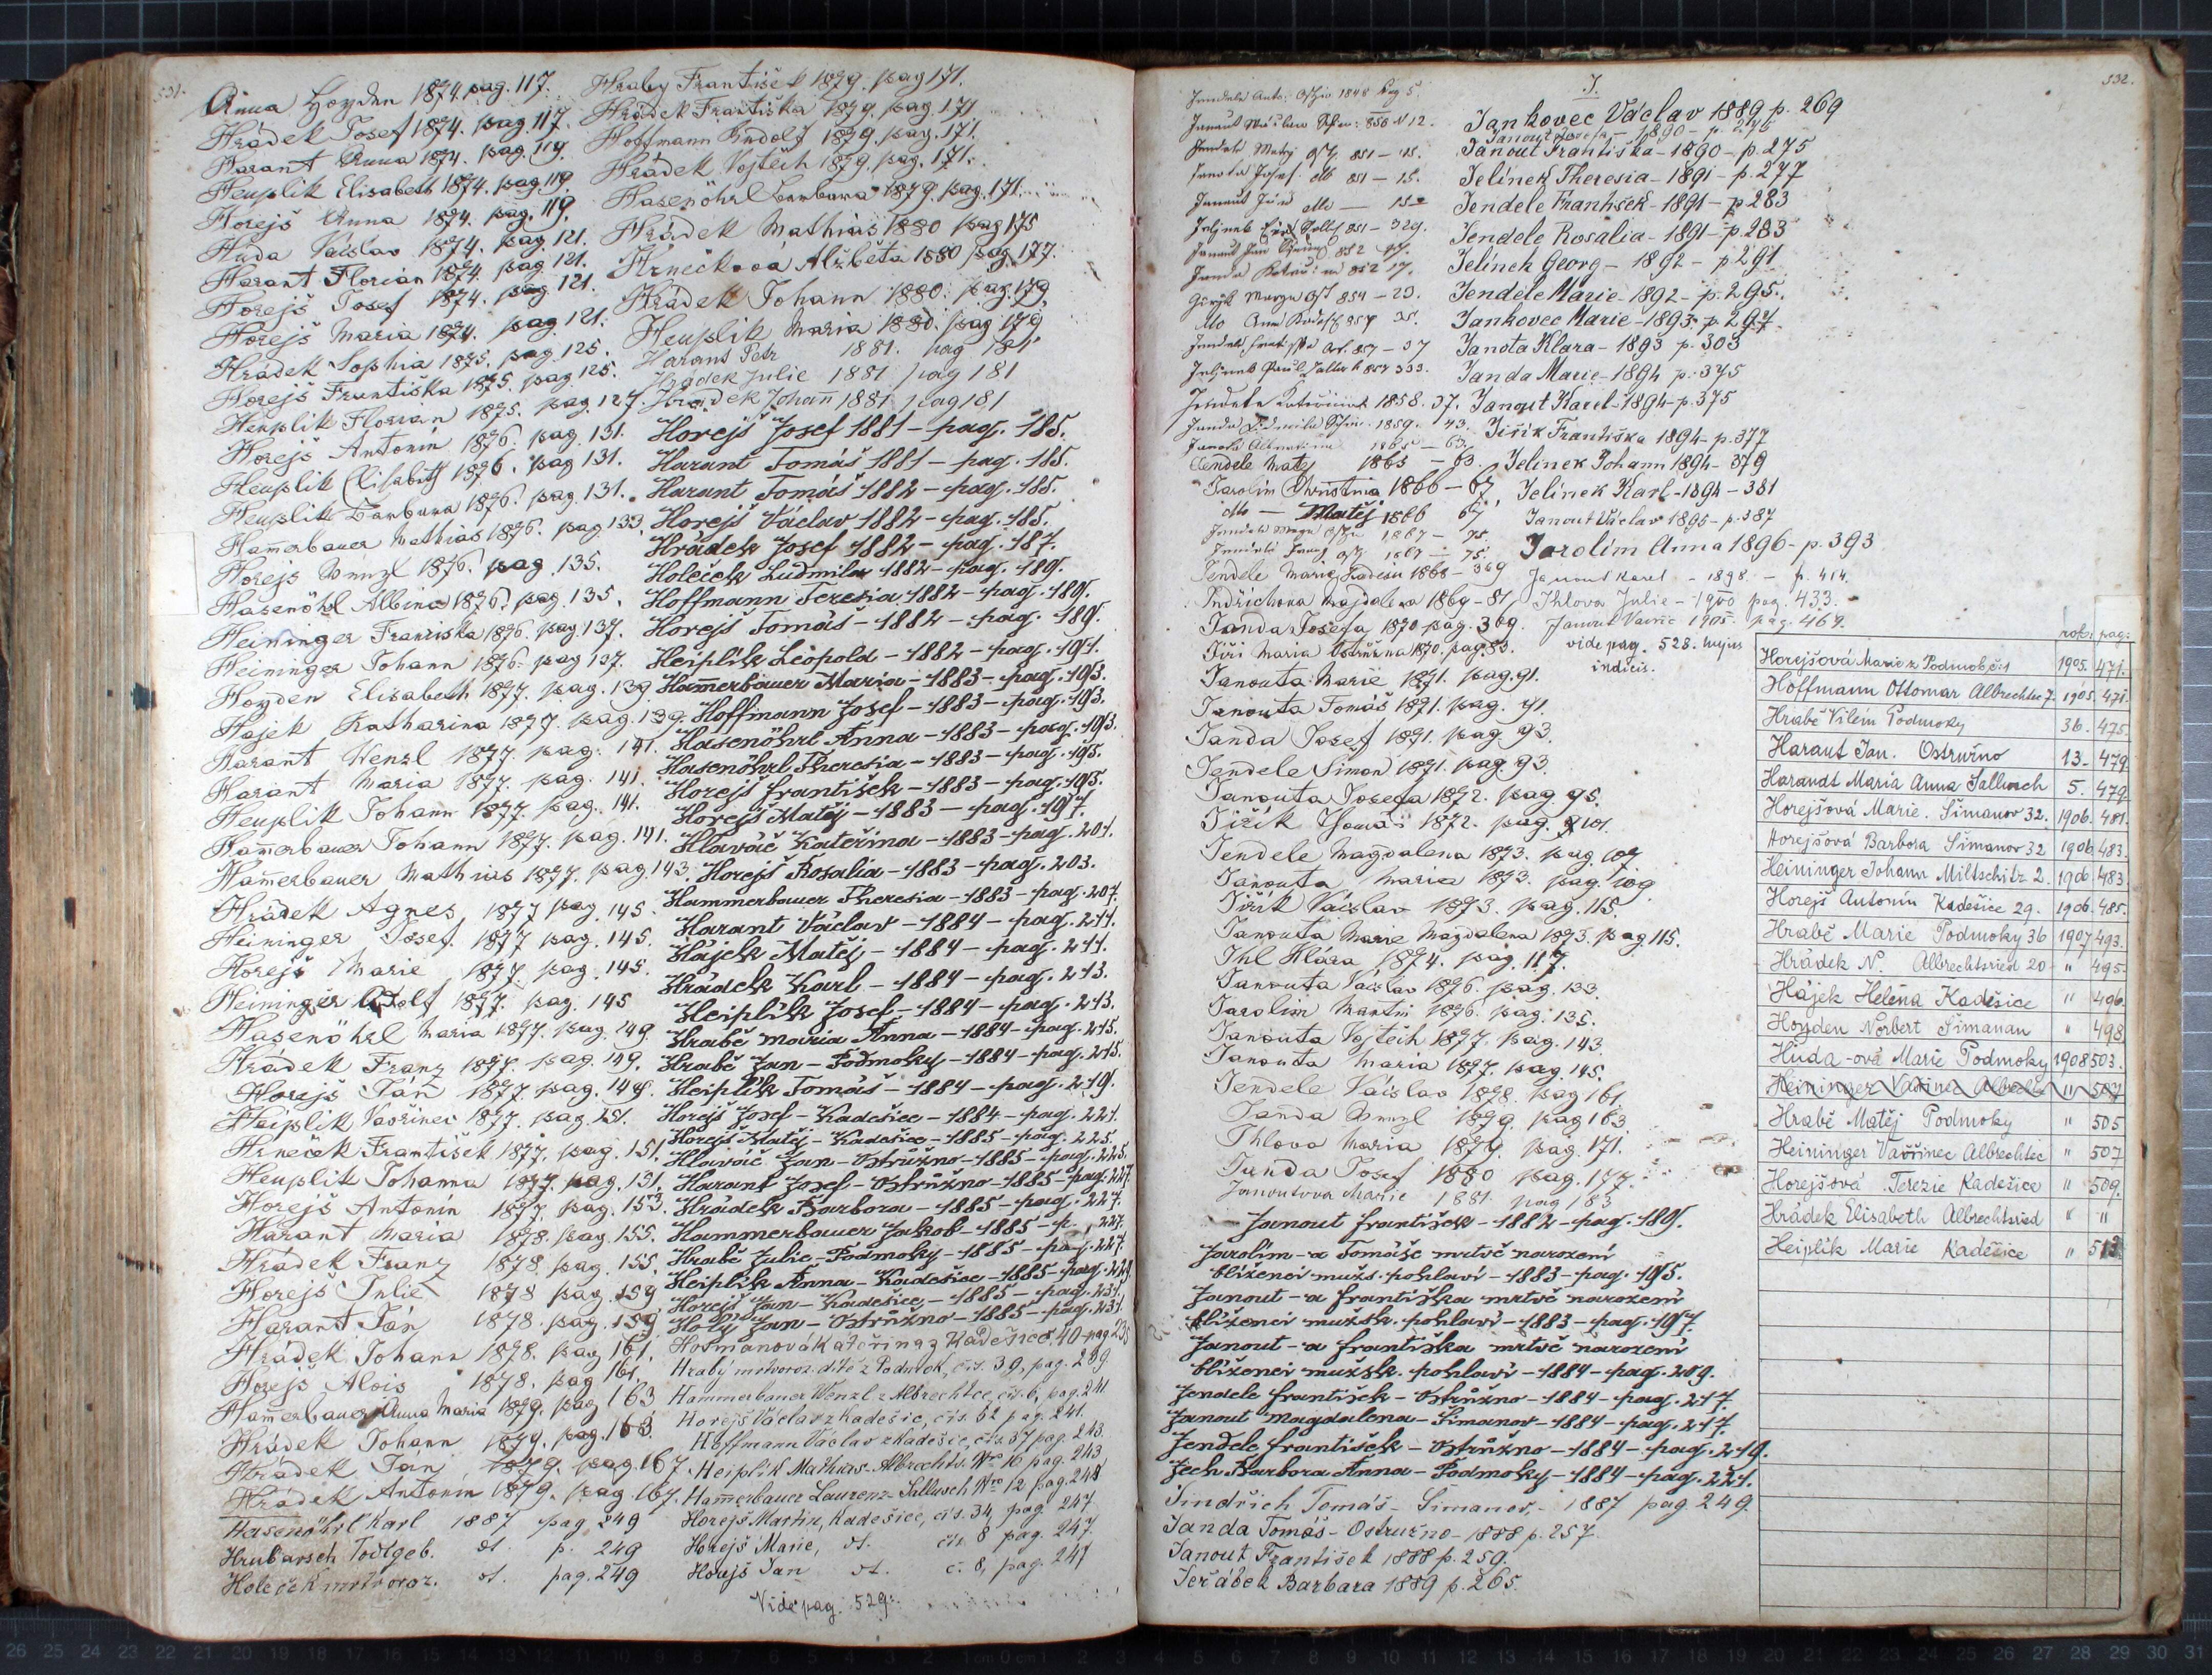 531.
Anna Hoyden 1874. pag. 117.
Hrádek Josef 1874. pag. 117.
Harant Anna 1874. pag. 119.
Heuplik Elisabeth 1874. pag. 119.
Horejš Anna 1874. pag. 119.
Huda Vácslav 1874. pag. 121.
Harant Florian 1874. pag. 121.
Horejš Josef 1874. pag. 121.
Horejš Maria 1874. pag. 121.
Hrádek Sophia 1875. pag. 125.
Horejš Františka 1875. pag. 125.
Heuplik Florian 1875. pag. 127.
Horejš Antonín 1876. pag. 131.
Heuplik Elisabeth 1876. pag 131.
Heuplik Barbara 1876. pag. 131.
Ham̅erbauer Mathias 1876. pag. 133.
Horejs Wenzl 1876. pag. 135.
Hasenöhl Albina 1876. pag. 135.
Heininger Franziska 1876. pag. 137.
Heininger Johann 1876. pag 137.
Hoyden Elisabeth 1877. pag. 139.
Hajek Katharina 1877. pag. 139.
Harant Wenzl 1877. pag. 141.
Harant Maria 1877. pag. 141.
Heuplik Johann 1877. pag. 141.
Ham̅erbauer Johann 1877. pag. 141.
Ham̅erbauer Mathias 1877. pag. 143.
Hrádek Agnes 1877 pag. 145.
Heininger Josef 1877 pag. 145.
Horejš Marie 1877. pag. 145.
Heininger Adolf 1877. pag. 145
Hasenöhrl Maria 1877. pag. 149.
Hrádek Franz 1877. pag. 149.
Horejs Ján 1877. pag. 149.
Heiplik Vavřinec 1877. pag. 151.
Hrneček František 1877. pag. 151.
Heuplik Johanna 1877. pag. 151.
Horejš Antonín 1877. pag. 153.
Harant Maria 1878. pag. 155.
Hrádek Franz 1878. pag. 155.
Horejš Julie 1878 pag. 159
Harant Ján 1878. pag. 159.
Hrádek Johann 1878. pag 161.
Horejš Alois 1878. pag 161.
Ham̅erbauer Anna Maria 1879. pag 163
Hrádek Johann 1879. pag. 163.
Hrádek Ján 1879. pag. 167.
Hrádek Antonín 1879. pag. 167.
Hasenöhrl Karl 1887 pag 249
Hrubarsch Todtgeb. dt. p. 249
Holeček mrtvoroz. dt. pag. 249
Hraby František 1879. pag 171.
Hrádek Františka 1879. pag. 171
Hoffmann Rudolf 1879. pag. 171.
Hrádek Vojtěch 1879. pag. 171.
Hasenöhrl Barbara 1879. pag. 171.
Hrádek Mathias 1880 pag 175
Hrnečkova Alžběta 1880 pag. 177.
Hrádek Johann 1880. pag. 179.
Heuplik Maria 1880. pag 179
Harant Petr 1881. pag 181
Hrádek Julie 1881 pag 181
Hrádek Johan̅ 1881 pag 181
Horejš Josef 1881 – pag. 185.
Harant Tomáš 1881 – pag. 185.
Harant Tomáš 1882 – pag. 185.
Horejš Václav 1882 – pag. 185.
Hrádek Josef 1882 – pag. 187.
Holeček Ludmila 1882 – pag. 189.
Hoffmann Terezia 1882 – pag. 189.
Horejš Tomáš – 1882 – pag. 189.
Heiplík Leopold – 1882 – pag. 191.
Ham̅erbauer Maria – 1883 – pag. 193.
Hoffmann Josef – 1883 – pag. 193.
Hasenöhrl Anna – 1883 – pag. 193.
Hasenöhrl Theresia – 1883 – pag. 195.
Horejš František – 1883 – pag. 195.
Horejš Matěj – 1883 – pag. 197.
Hlaváč Kateřina – 1883 – pag. 201.
Horejš Rosalia – 1883 – pag. 203.
Hammerbauer Theresia – 1883 – pag. 207.
Harant Václav – 1884 – pag. 211.
Hájek Matěj – 1884 – pag. 211.
Hrádek Karl – 1884 – pag. 213.
Heiplík Josef – 1884 – pag. 213.
Hrabě Maria Anna – 1884 – pag. 215.
Hrabě Jan – Podmoky – 1884 – pag. 215.
Heiplík Tomáš – 1884 – pag. 219.
Horejš Josef – Kadešice – 1884 – pag. 221.
Horejš Matěj – Kadešice – 1885 – pag. 225.
Hlaváč Jan – Ostružno – 1885 – pag. 225.
Harant Josef – Ostružno – 1885 – pag. 227.
Hrádek Barbora – 1885 – pag. 227.
Hammerbauer Jakob – 1885 – p. 227.
Hrabě Julie – Podmoky – 1885 – pag. 227.
Heiplík Anna – Kadešice – 1885 – pag. 229.
Horejš Jan – Kadešice – 1885 – pag. 231.
Holý Jan – Ostružno – 1885 – pag. 231.
Hofmanová Kateřina z Kadešic č. 40 – pag 235
Hrabý mrtvoroz. dítě z Podmok, čís. 39, pag. 239.
Hammerbauer Wenzl z Albrechtce, čís. 6, pag. 241
Horejš Václav z Kadešic, čís. 62 pag. 241.
Hoffmann Václav z Kadešic, čís. 37 pag. 243.
Heiplik Mathias. Albrechts. Nro 16 pag. 243
Ham̅erbauer Laurenz – Sallusch Nro 12 pag. 248
Horejš Martin, Kadešice, čís. 34, pag. 247
Horejš Marie, dt. čís. 8 pag. 247.
Horejš Jan dt. č. 8, pag. 247
Vide pag. 529.
J.
532.
Jankovec Václav 1889 p. 269
Janout Františka – 1890 – p. 275
Jelínek Theresia – 1891 – p. 277
Jendele František – 1891 – p 283
Jendele Rosalia – 1891 – p. 283
Jelínek Georg – 1892 – p 291
Jendele Marie – 1892 – p. 295.
Jankovec Marie – 1893 – p. 297.
Janota Klara – 1893 p. 303
Janda Marie – 1894 p. 375
Janout Karel – 1894 – p. 375
Jiřík Františka 1894 – p. 377
Jelinek Johann 1894 – 379
Jelínek Karl – 1894 – 381
Janout Václav 1895 – p. 387
Jarolím Anna 1896 – p. 393
Janout Karel – 1898 – p. 414.
Ihlova Julie – 1900 pag. 433.
vide pag. 528. hujus
indicis.
Jendele Matej 1865 – 63.
Jarolím Christina 1866 – 67.
dtto – Matěj 1866 67.
Jendele Marie Kadešic 1868 – 369
Indřichova Magdalena 1869 – 81
Janda Josefa 1870 pag. 369.
Jiři Maria Ostružna 1870. pag. 85.
Janouta Marie 1871. pag. 91.
Janouta Tomáš 1871. pag. 91.
Janda Josef 1871. pag. 93.
Jendele Simon 1871. pag. 93.
Janouta Josefa 1872. pag. 95.
Jiřík Tomáš 1872. pag. 101.
Jendele Magdalena 1873. pag. 107.
Janouta Maria 1873. pag. 109
Jiřík Vácslav 1873. pag. 115.
Janouta Marie Magdalena 1873. pag. 115.
Ihl Klára 1874. pag. 117.
Janouta Václav 1876. pag. 133.
Jarolím Martin 1876. pag. 135.
Janouta Vojtěch 1877. pag. 143.
Janouta Maria 1877. pag. 145.
Jendele Vácslav 1878. pag 161.
Janda Wenzl 1879. pag 163
Ihlova Maria 1879. pag. 171.
Janda Josef 1880 pag. 177.
Janoutova Marie 1881. pag 183
Janout František – 1882 – pag. 189.
Jarolím – a Tomáše mrtvě narození
blíženci mužs. pohlaví – 1883 – pag. 195.
Janout – a Františka mrtvě narození
blíženci mužsk. pohlaví – 1883 – pag. 197.
Janout – a Františka mrtvě narození
blíženci mužsk. pohlaví – 1884 – pag. 209.
Jendele František – Ostružno – 1884 – pag. 217.
Janout Magdalena – Simanov – 1884 – pag. 217.
Jendele František – Ostružno – 1884 – pag. 219.
Jech Barbora Anna – Podmoky – 1884 – pag. 221.
Jindřich Tomáš – Šimanov, – 1887 pag. 249.
Janda Tomáš – Ostružno – 1888 p. 257
Janout František 1888 p. 259.
Jeřábek Barbara 1889 p. 265.
rok: pag:
Horejšová Marie z Podmok č. 1 1905. 471.
Hoffmann Ottomar Albrechtec 7. 1905. 471.
Hrabě Vilém Podmoky 36. 475.
Haraut Jan. Ostružno 13. 479
Harandt Maria Anna Sallusch 5. 479
Horejšová Marie. Šimanov 32. 1906. 481.
Horejšová Barbora Šimanov 32 1906. 483.
Heininger Johann Miltschitz 2. 1906. 483
Horejš Antonín Kadešice 29. 1906. 485.
Hrabě Marie Podmoky 36 1907 493.
Hrádek N. Albrechtsried 20 " 495.
Hájek Helena Kadešice " 496.
Hoyden Norbert Šimanau " 498
Huda-ová Marie Podmoky 1908 503.
Heininger Vavřinec Albrechtec " 507
Hrabě Matěj Podmoky " 505
Heininger Vavřinec Albrechtec " 507
Horejšová Terezie Kadešice " 509.
Hrádek Elisabeth Albrechtsried " "
Heiplík Marie Kadešice " 513